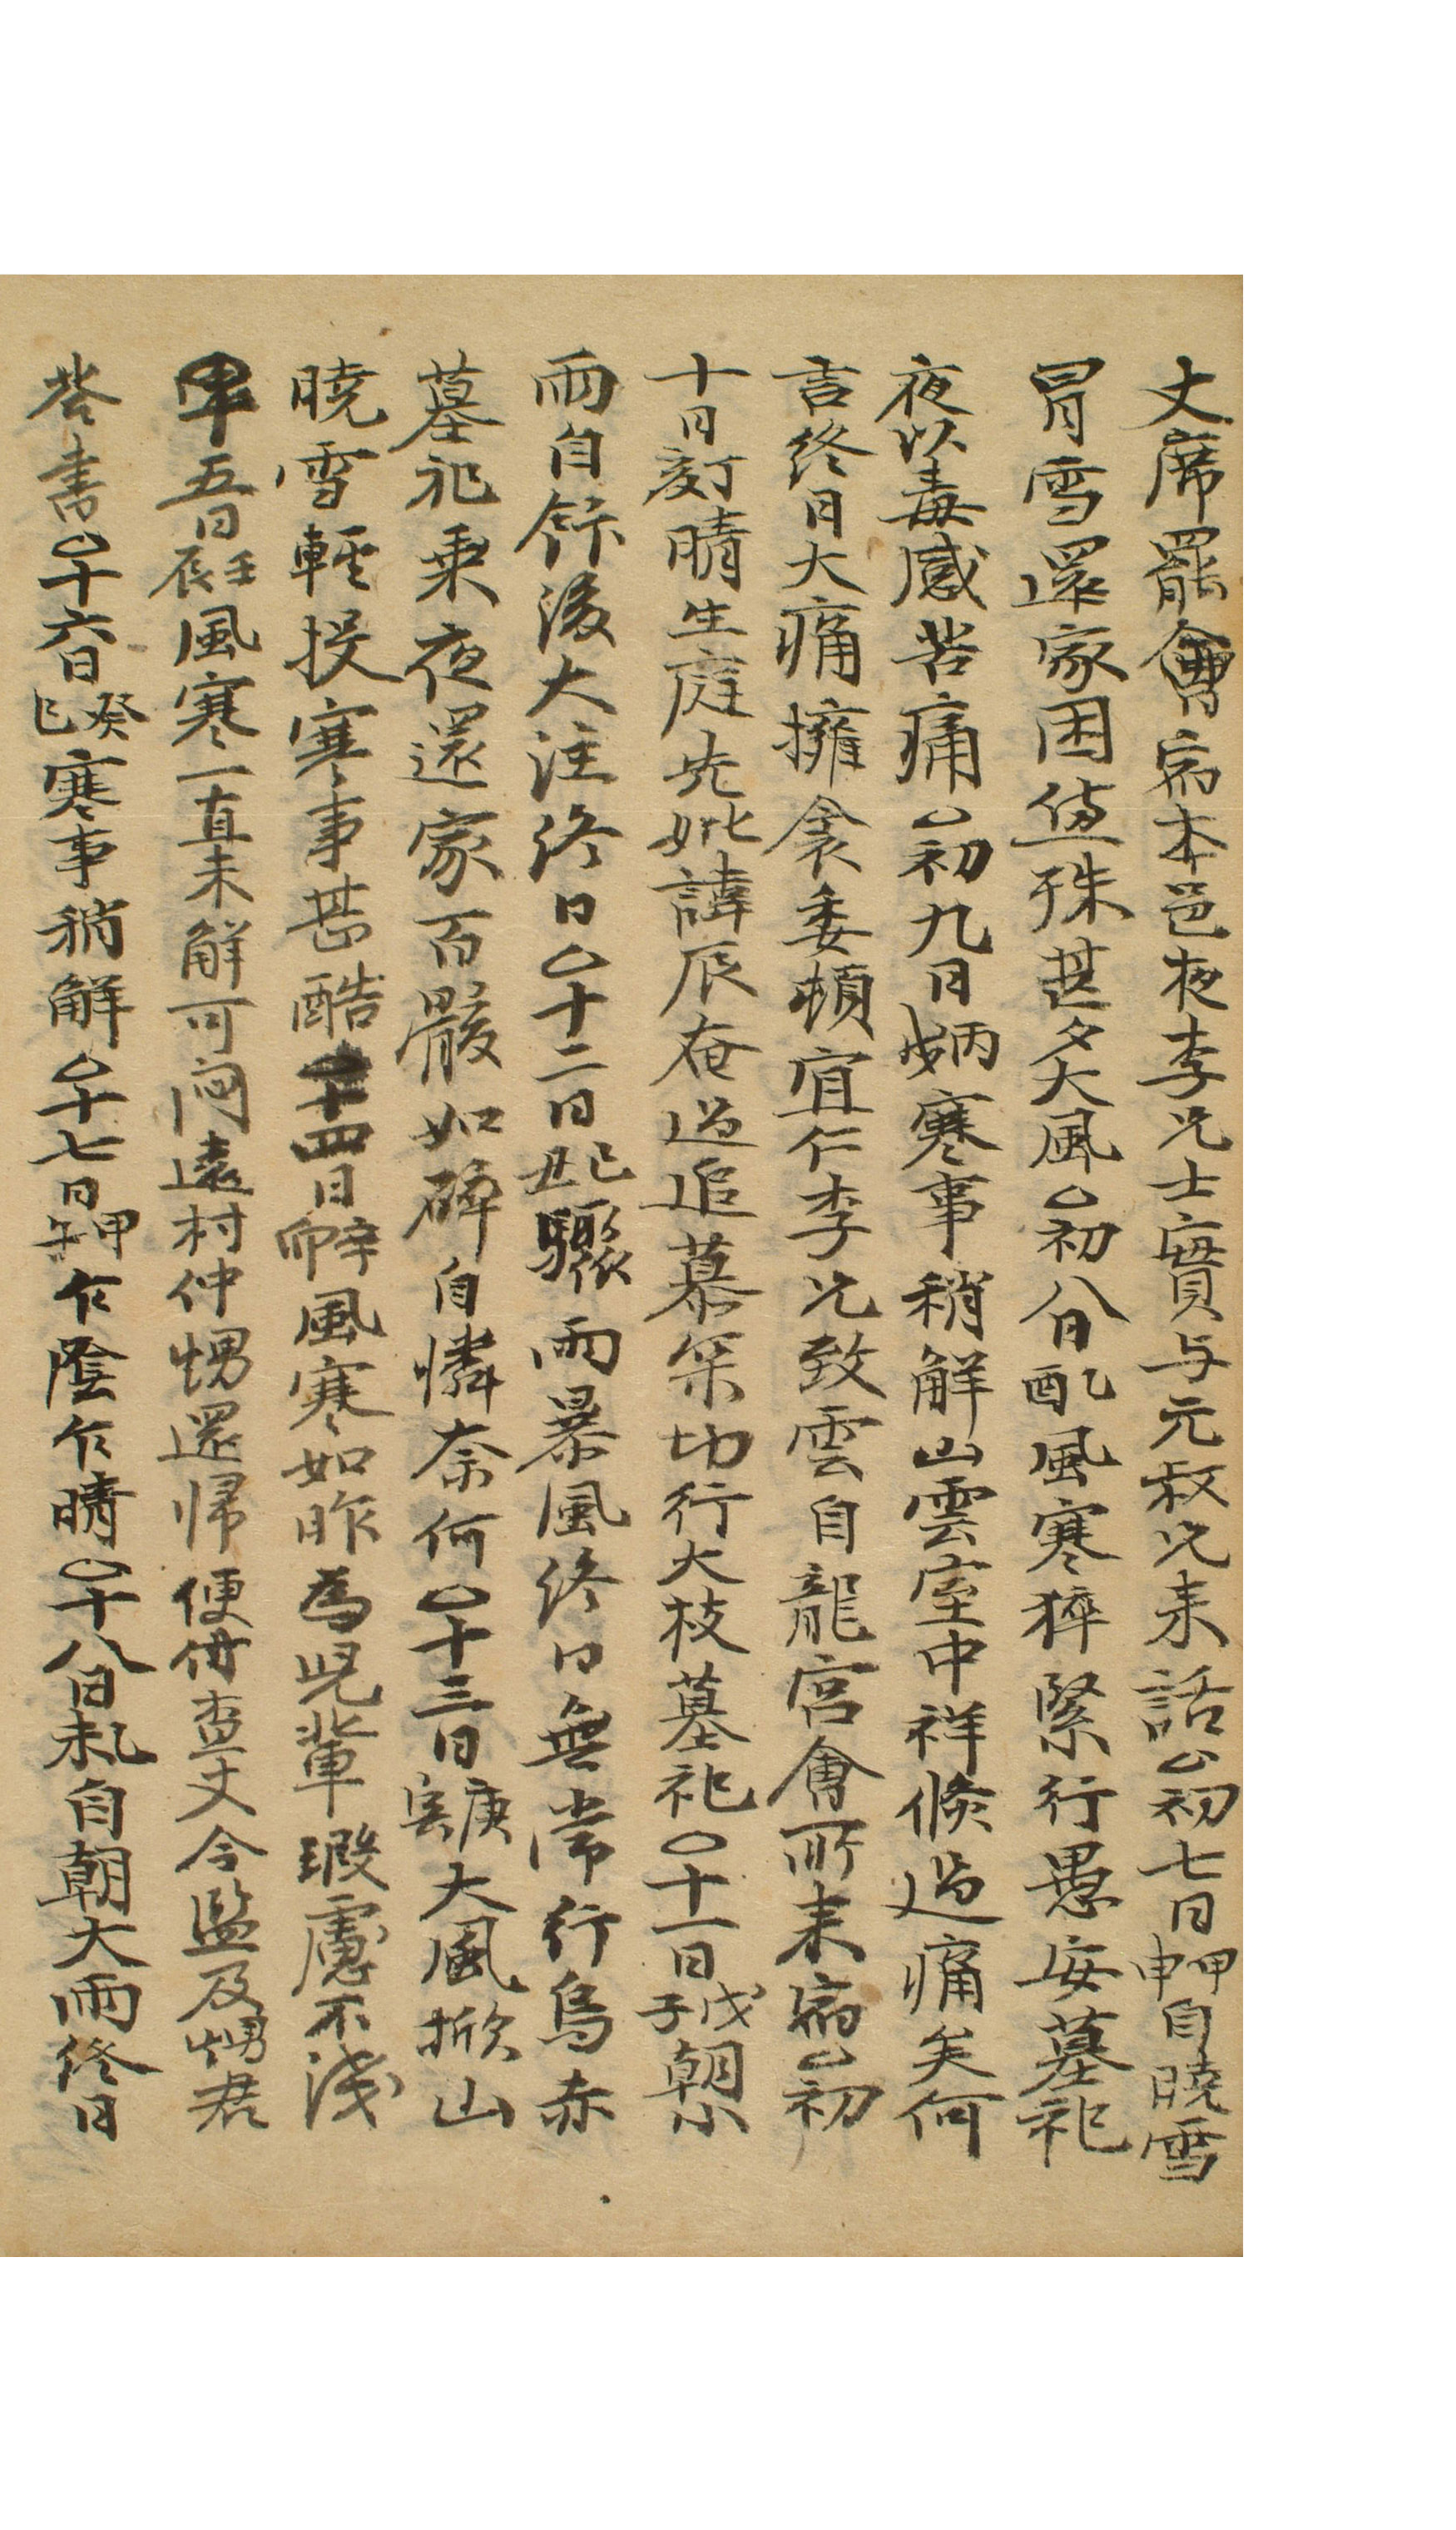 丈席罷會宿本邑夜李兄士實与元叔兄来話○初七日甲申自曉雪
冒雪還家困憊殊甚夕大風○初八日乙酉風寒猝緊行愚安墓祀
夜以毒感苦痛○初九日丙戌寒事稍解山雲室中祥倏過痛矣何
言終日大痛擁衾委頓宜仁李兄致雲自龍宮會所来宿○初
十日丁亥晴生庭先妣諱辰奄過追慕罙切行大枝墓祀○十一日戊子朝小
雨自飯後大注終日○十二日己丑驟雨暴風終日無常行烏赤
墓祀乘夜還家百骸如碎自憐奈何○十三日庚寅大風掀山
曉雪輕投寒事甚酷十四日辛卯風寒如昨為児輩瑕慮不浅
十五日壬辰風寒一直未解可悶遠村仲甥還歸便付査丈令監及甥君
答書○十六日癸巳寒事稍解○十七日甲午乍陰乍晴○十八日乙未自朝大雨終日